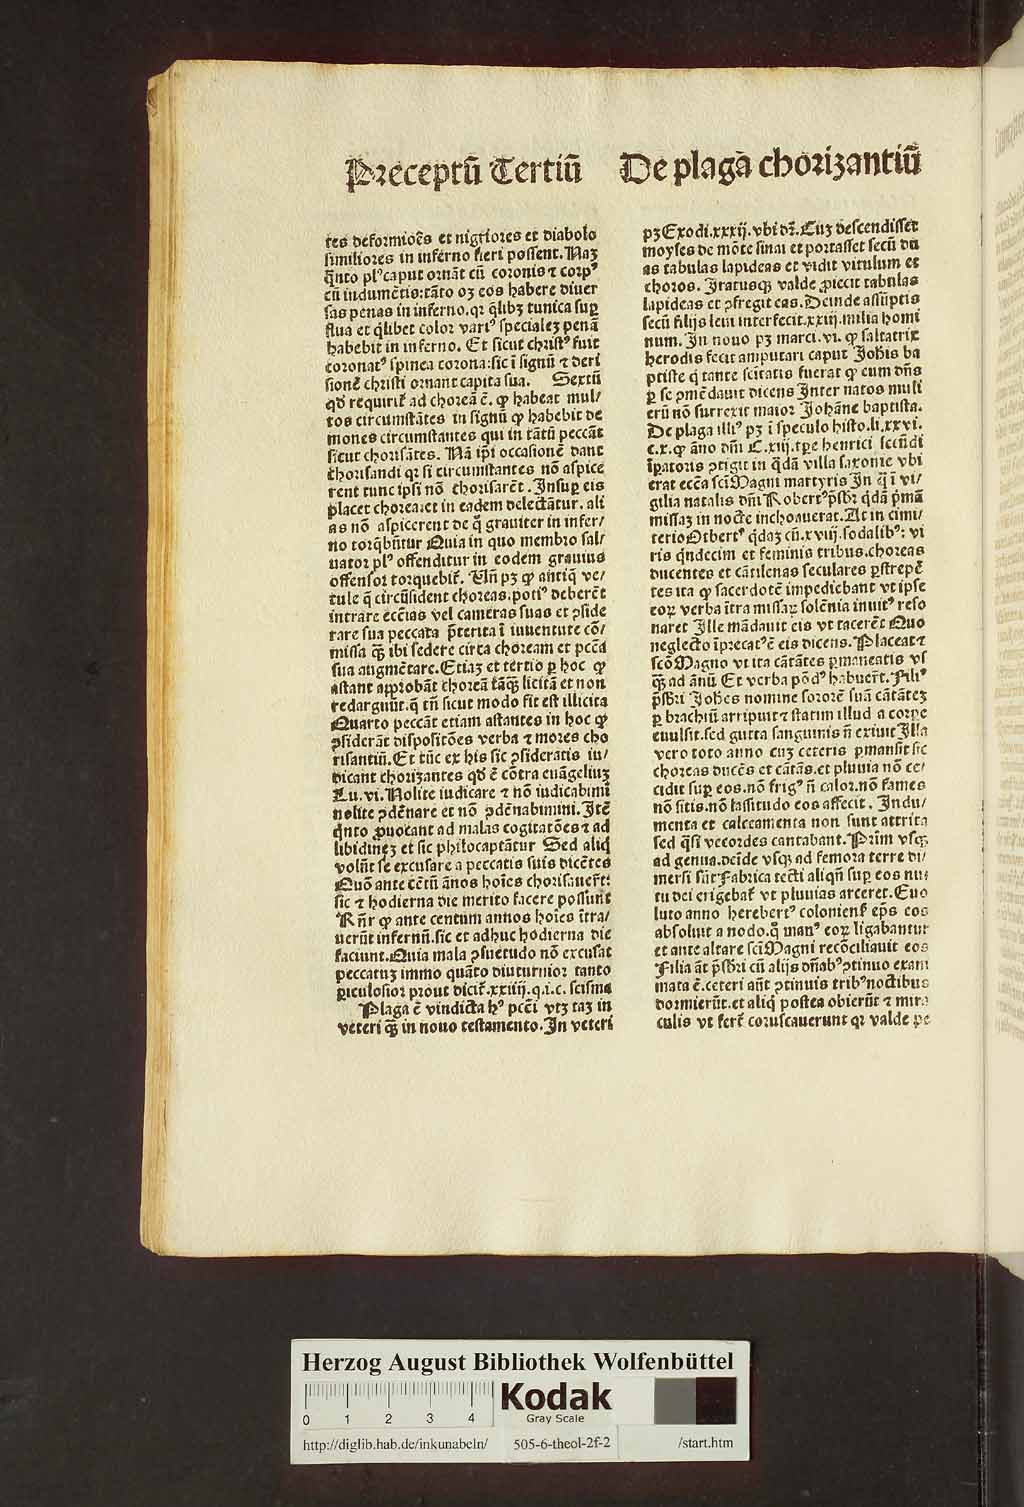 Preceptū Tertiū De plaga chorizantiū
tes deformiões et nigriores et diabolo
similiores in inferno fieri possent. Naʒ
q̄nto plꝰ caput ornāt cū coronis ⁊ corpꝰ
cū indumētis: tāto oʒ eos habere diuer
sas penas in inferno. qr q̄libʒ tunica suꝑ
flua et q̄libet color variꝰ specialeʒ penā
habebit in inferno. Et sicut christꝰ fuit
coronatꝰ spinea corona: sic ī signū ⁊ deri
sionē christi ornant capita sua. Sextū
qđ requirit̄ ad choreā ē. ꝙ habeat mul/
tos circumstātes in signū ꝙ habebit de
mones circumstantes qui in tātū peccāt
sicut chorisātes. Nā ip̄i occasionē dant
chorisandi qr si circumstantes nō aspice
rent tunc ipsi nō chorisarēt. Insuꝑ eis
placet chorea: et in eadem delectātur. ali
as nō aspicerent de q̄ grauiter in infer/
no torq̄būtur Quia in quo membro sal/
uator plꝰ offenditur in eodem grauius
offensor torquebit̄. Uñ pʒ ꝙ antiq̄ ve/
tule q̄ circūsident choreas. potiꝰ deberēt
intrare ecc̄ias vel cameras suas et ꝯside
rare sua peccata p̄terita ī iuuentute cō/
missa q̄ʒ ibi sedere circa choream et pccā
sua augmētare. Etiaʒ et tertio ꝑ hoc ꝙ
astant approbāt choreā tāq̄ʒ licitā et non
redarguūt. q̄ tn̄ sicut modo fit est illicita
Quarto peccāt etiam astantes in hoc ꝙ
ꝯsiderāt dispositōes verba ⁊ mores cho
risantiū. Et tūc ex his sic ꝯsideratis iu/
dicant chorizantes qđ ē cōtra euāgeliuʒ
Lu. vi. Nolite iudicare ⁊ nō iudicabimī
nolite ꝯdēnare et nō ꝯdēnabimini. Itē
q̄nto ꝓuocant ad malas cogitatōes ⁊ ad
libidineʒ et sic philocaptātur Sed aliq̄
volūt se excusare a peccatis suis dicētes
Quō ante cētū ānos hoīes chorisauer̄t:
sic ⁊ hodierna die merito facere possunt
Rn̄r ꝙ ante centum annos hoīes ītra/
uerūt infernū. sic et adhuc hodierna die
faciunt. Quia mala ꝯsuetudo nō excusat
peccatuʒ immo quāto diuturnior tanto
ꝑiculosior prout dicit̄. xxiiij. q. i. c. scisma
Plaga ē vindicta hꝰ pccī vtʒ taʒ in
veteri q̄ʒ in nouo testamento. In veteri
pʒ Exodi. xxxij. vbi dr̄. Cuʒ descendisset
moyses de mōte sinai et portasset secū du
as tabulas lapideas et vidit vitulum et
choros. Iratusqʒ valde ꝓiecit tabulas
lapideas et ꝯfregit eas. Deinde assūptis
secū filijs leui interfecit. xxiij. milia homi
num. In nouo pʒ marci. vi. ꝙ saltatrix
herodis fecit amputari caput Joh̄is ba
ptiste q̄ tante sc̄itatis fuerat ꝙ eum dn̄s
ꝑ se ꝯmēdauit dicens Inter natos muli
erū nō surrexit maior Johāne baptista.
De plaga illiꝰ pʒ ī speculo histo. li. xxvi.
c. x. ꝙ āno dn̄i C. xiij. tp̄e henrici secūdi
īꝑatoris ꝯtigit in q̄dā villa saxonie vbi
erat ecc̄a sc̄i Magni martyris In q̄ ī vi/
gilia natalis dn̄i Robertꝰ p̄sbr̄ q̄dā p̄mā
missaʒ in nocte inchoauerat. At in cimi/
terio Otbertꝰ q̄daʒ cū. xviij. sodalibꝰ: vi
ris q̄ndecim et feminis tribus. choreas
ducentes et cātilenas seculares ꝑstrepē
tes ita ꝙ sacerdotē impediebant vt ipse
eoꝝ verba ītra missaꝝ solēnia inuitꝰ reso
naret Ille mādauit eis vt tacerēt Quo
neglecto īprecatꝰ ē eis dicens. Placeat ⁊
sc̄o Magno vt ita cātātes ꝑmaneatis vs
q̄ʒ ad ānū Et verba pōdꝰ habuer̄t. Filiꝰ
p̄sbr̄i Joh̄es nomine sororē suā cātāteʒ
ꝑ brachiū arripuit ⁊ statim illud a corpe
euulsit. sed gutta sanguinis n̄ exiuit Illa
vero toto anno cuʒ ceteris ꝑmansit sic
choreas ducēs et cātās. et pluuia nō ce/
cidit suꝑ eos. nō frigꝰ n̄ calor. nō fames
nō sitis. nō lassitudo eos affecit. Indu/
menta et calceamenta non sunt attrita
sed q̄si vecordes cantabant. Prīm vsqʒ
ad genua. deīde vsqʒ ad femora terre di/
mersi sūt Fabrica tecti aliqn̄ suꝑ eos nu
tu dei erigebat̄ vt pluuias arceret. Euo
luto anno herebertꝰ coloniens̄ ep̄s eos
absoluit a nodo. q̄ manꝰ eoꝝ ligabantur
et ante altare sc̄i Magni recōciliauit eos
Filia āt p̄sbr̄i cū alijs dn̄abꝰ ꝯtinuo exani
mata ē. ceteri aūt ꝯtinuis tribꝰ noctibus
dormierūt. et aliq̄ postea obierūt ⁊ mira
culis vt fert̄ coruscauerunt qr valde pe
Herzog August Bibliothek Wolfenbüttel
0 1 2 3 4 Kodak
Gray Scale
http://diglib.hab.de/inkunabeln/ 505-6-theol-2f-2 /start.htm